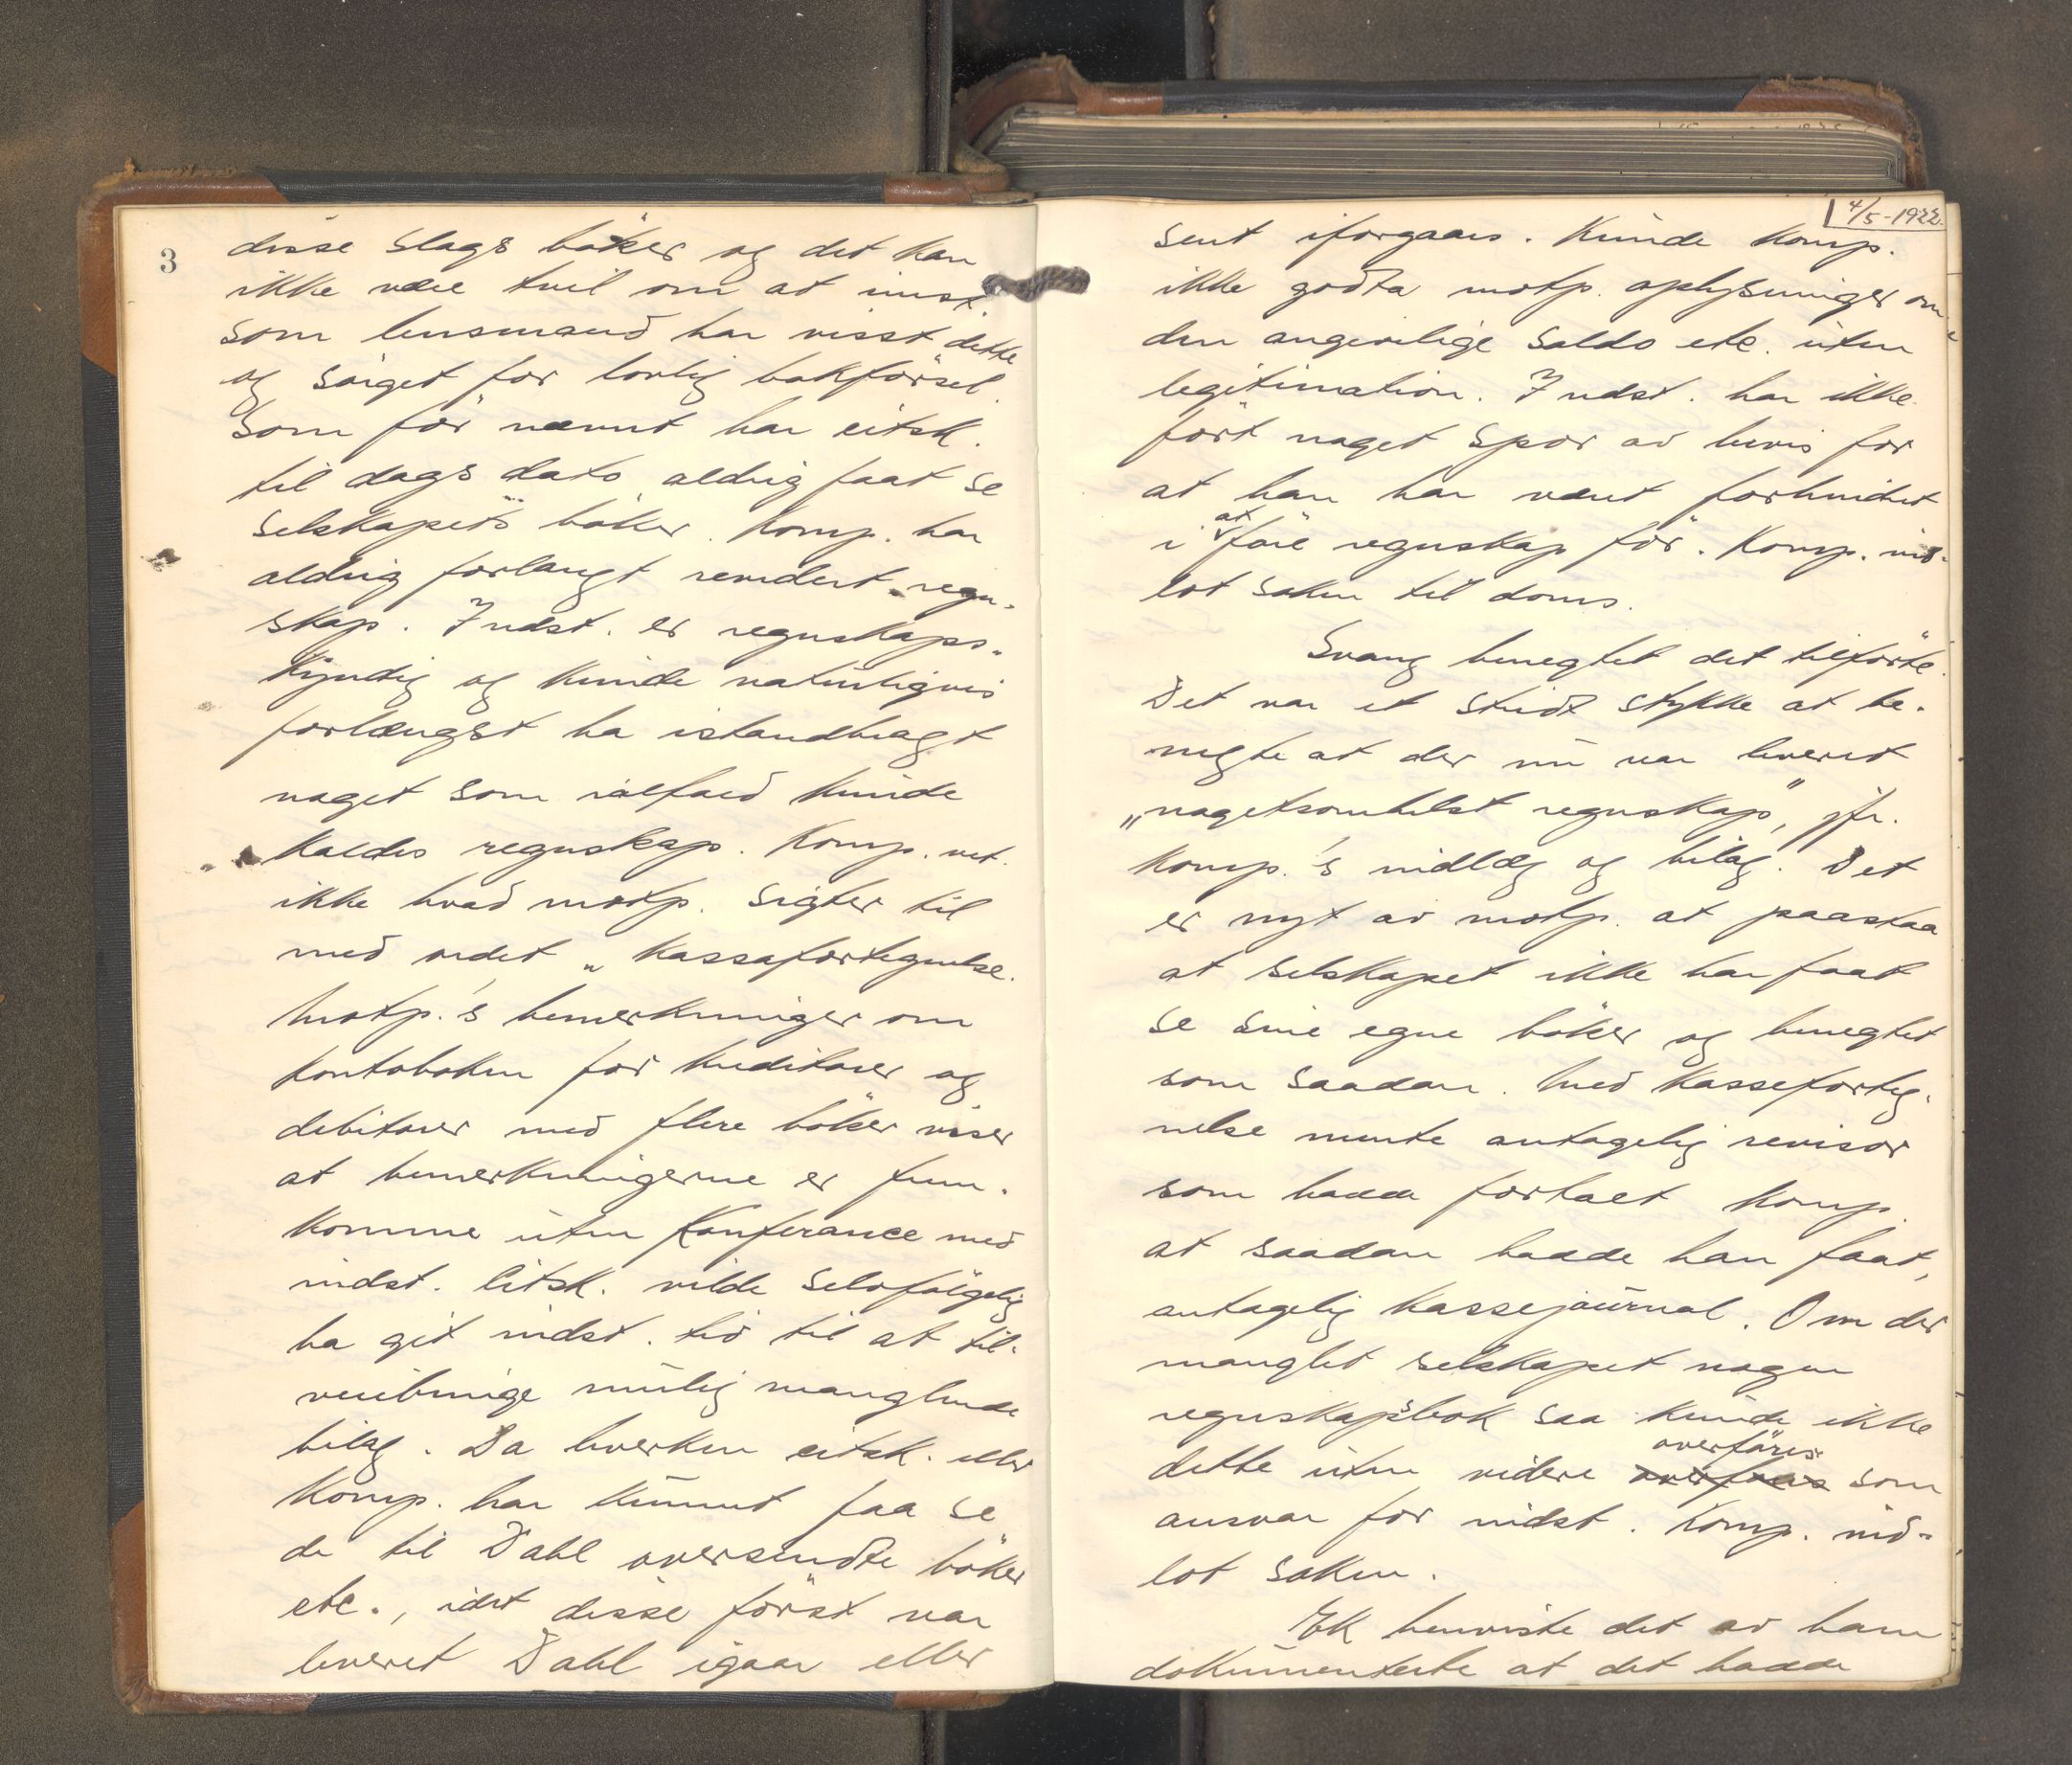 3
disse slags bøker og det kan
ikke være tvil om at innst.
som lensmand har visst dette
og sørget for lovlig bokførsel.
Som før nævnt har citsk.
til dags dato aldrig faat se
selskapets bøker. Komp. har
aldrig forlangt revidert regn-
skap. Indst. er regnskaps-
kyndig og kunde naturligvis
forlængst ha istandbragt
noget som ialfald kunde
kaldes regnskap. Komp. vet
ikke hvad motp. sigter til
med ordet „kassafortegnelse.
Motp.'s bemerkninger om
kontoboken for kreditorer og
debitorer med flere bøker viser
at bemerkningerne er frem-
komne uten konferance med
indst. Citsk. vilde selvfølgelig
ha git indst. tid til at til-
veiebringe mulig manglende
bilag. Da hverken citsk. eller
Komp. har kunnet faa se
de til Dahl oversendte bøker
etc., idet disse først var
leveret Dahl igaar eller
4/5-1922.
sent iforgaars. Kunde Komp.
ikke godta motp. oplysninger om
den angivelige saldo etc. uten
legitimation. Indst. har ikke
ført noget spor av bevis for
at han har været forhindret
i at føre regnskap før. Komp. ind-
lot saken til doms.
Svang benegtet det tilførte.
Det var et stridt stykke at be-
negte at der nu var leveret
„nogetsomhelst regnskap", jfr.
Komp.'s indlæg og bilag. Det
er nyt av motp. at paastaa
at selskapet ikke har faat
se sine egne bøker og benegtet
som saadan. Med kasseforteg-
nelse mente antagelig revisor
som hadde fortalt Komp.
at saadan hadde han faat,
antagelig kassejournal. Om der
manglet selskapet nogen
regnskapsbok saa kunde ikke
dette uten videre overføres som
ansvar for indst. Komp. ind-
lot saken.
Ek henviste det av ham
dokumenterte at det hadde